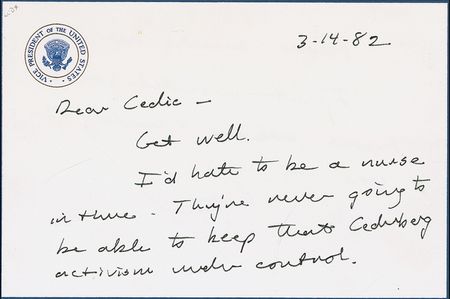 VICE PRESIDENT OF THE UNITED STATES
3-14-82
Dear Cedie —
Get well.
I'd hate to be a nurse
in there - They're never going to
be able to keep that Cederberg
activism under control.